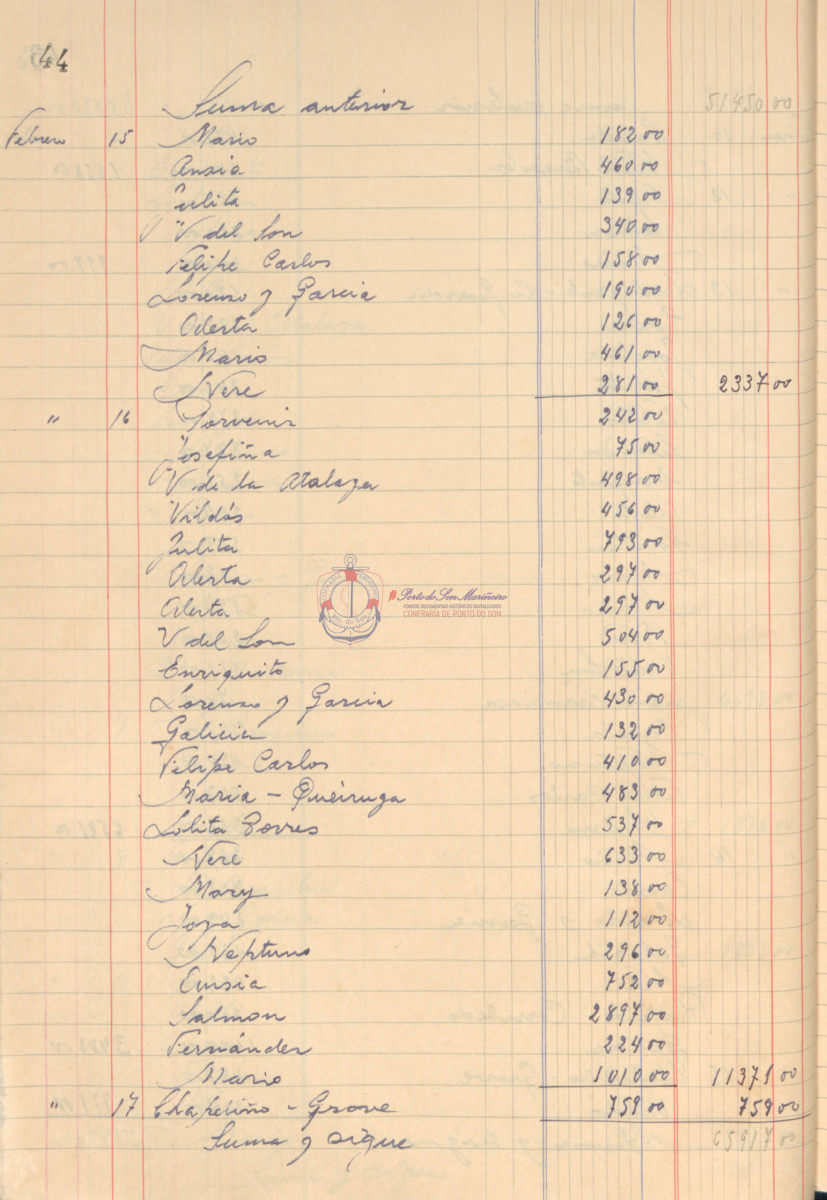 44
Suma anterior 51450 00
Febrero 15 Mario 182 00
Ansia 460 00
Julita 139 00
V del Son 340 00
Felipe Carlos 158 00
Lorenso y Garcia 190 00
Oderta 126 00
Mario 461 00
Nere 281 00 2337 00
" 16 Porvenir 242 00
Josefiña 75 00
V de la Atalaya 498 00
Vildós 456 00
Julita 793 00
Alerta 297 00
Alerta 297 00
V del Son 504 00
Enriquito 155 00
Lorenso y Garcia 430 00
Galicia 132 00
Felipe Carlos 410 00
Maria - Queiruga 483 00
Lolita Torres 537 00
Nere 633 00
Mary 138 00
Joya 112 00
Neptuno 296 00
Ensia 752 00
Salmon 2897 00
Fernánder 224 00
Mario 1010 00 11371 00
" 17 Chapeliño - Grove 759 00 759 00
Suma y sigue 65917 00
Porto do Son Mariñeiro
FONDOS DOCUMENTAIS HISTÓRICOS DIXITALIZADOS
CONFRARÍA DE PORTO DO SON